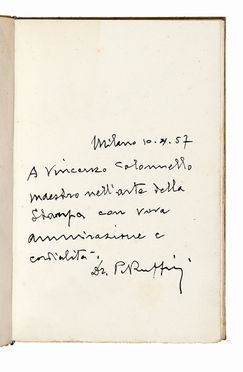 Milano 10.XI.57
A Vincenzo Colonnello
maestro nell'arte della
Stampa con viva
ammirazione e
cordialità.
Dr. P. Ruffini